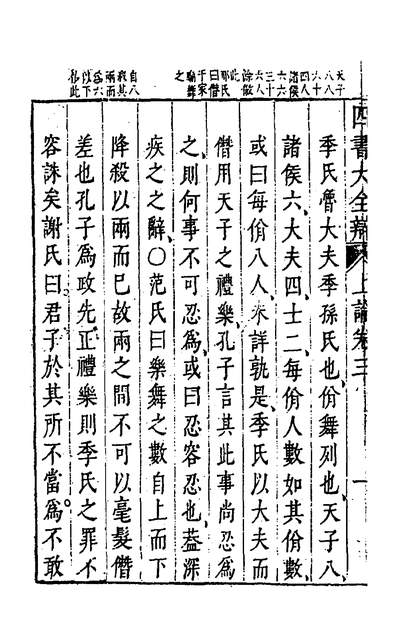 四書大全辯 上論卷三 一
天子
八八
六十
四人
諸侯
六六
三十
六人
餘倣
此
邢氏
曰僭
于家
廟舞
之
自八
殺其
兩而
爲六
以下
倣此
季氏魯大夫季孫氏也佾舞列也天子八
諸侯六大夫四士二每佾人數如其佾數
或曰每佾八人未詳孰是季氏以大夫而
僭用天子之禮樂孔子言其此事尚忍爲
之則何事不可忍爲或曰忍容忍也葢深
疾之之辭○范氏曰樂舞之數自上而下
降殺以兩而已故兩之間不可以毫髮僭
差也孔子爲政先正禮樂則季氏之罪不
容誅矣謝氏曰君子於其所不當爲不敢